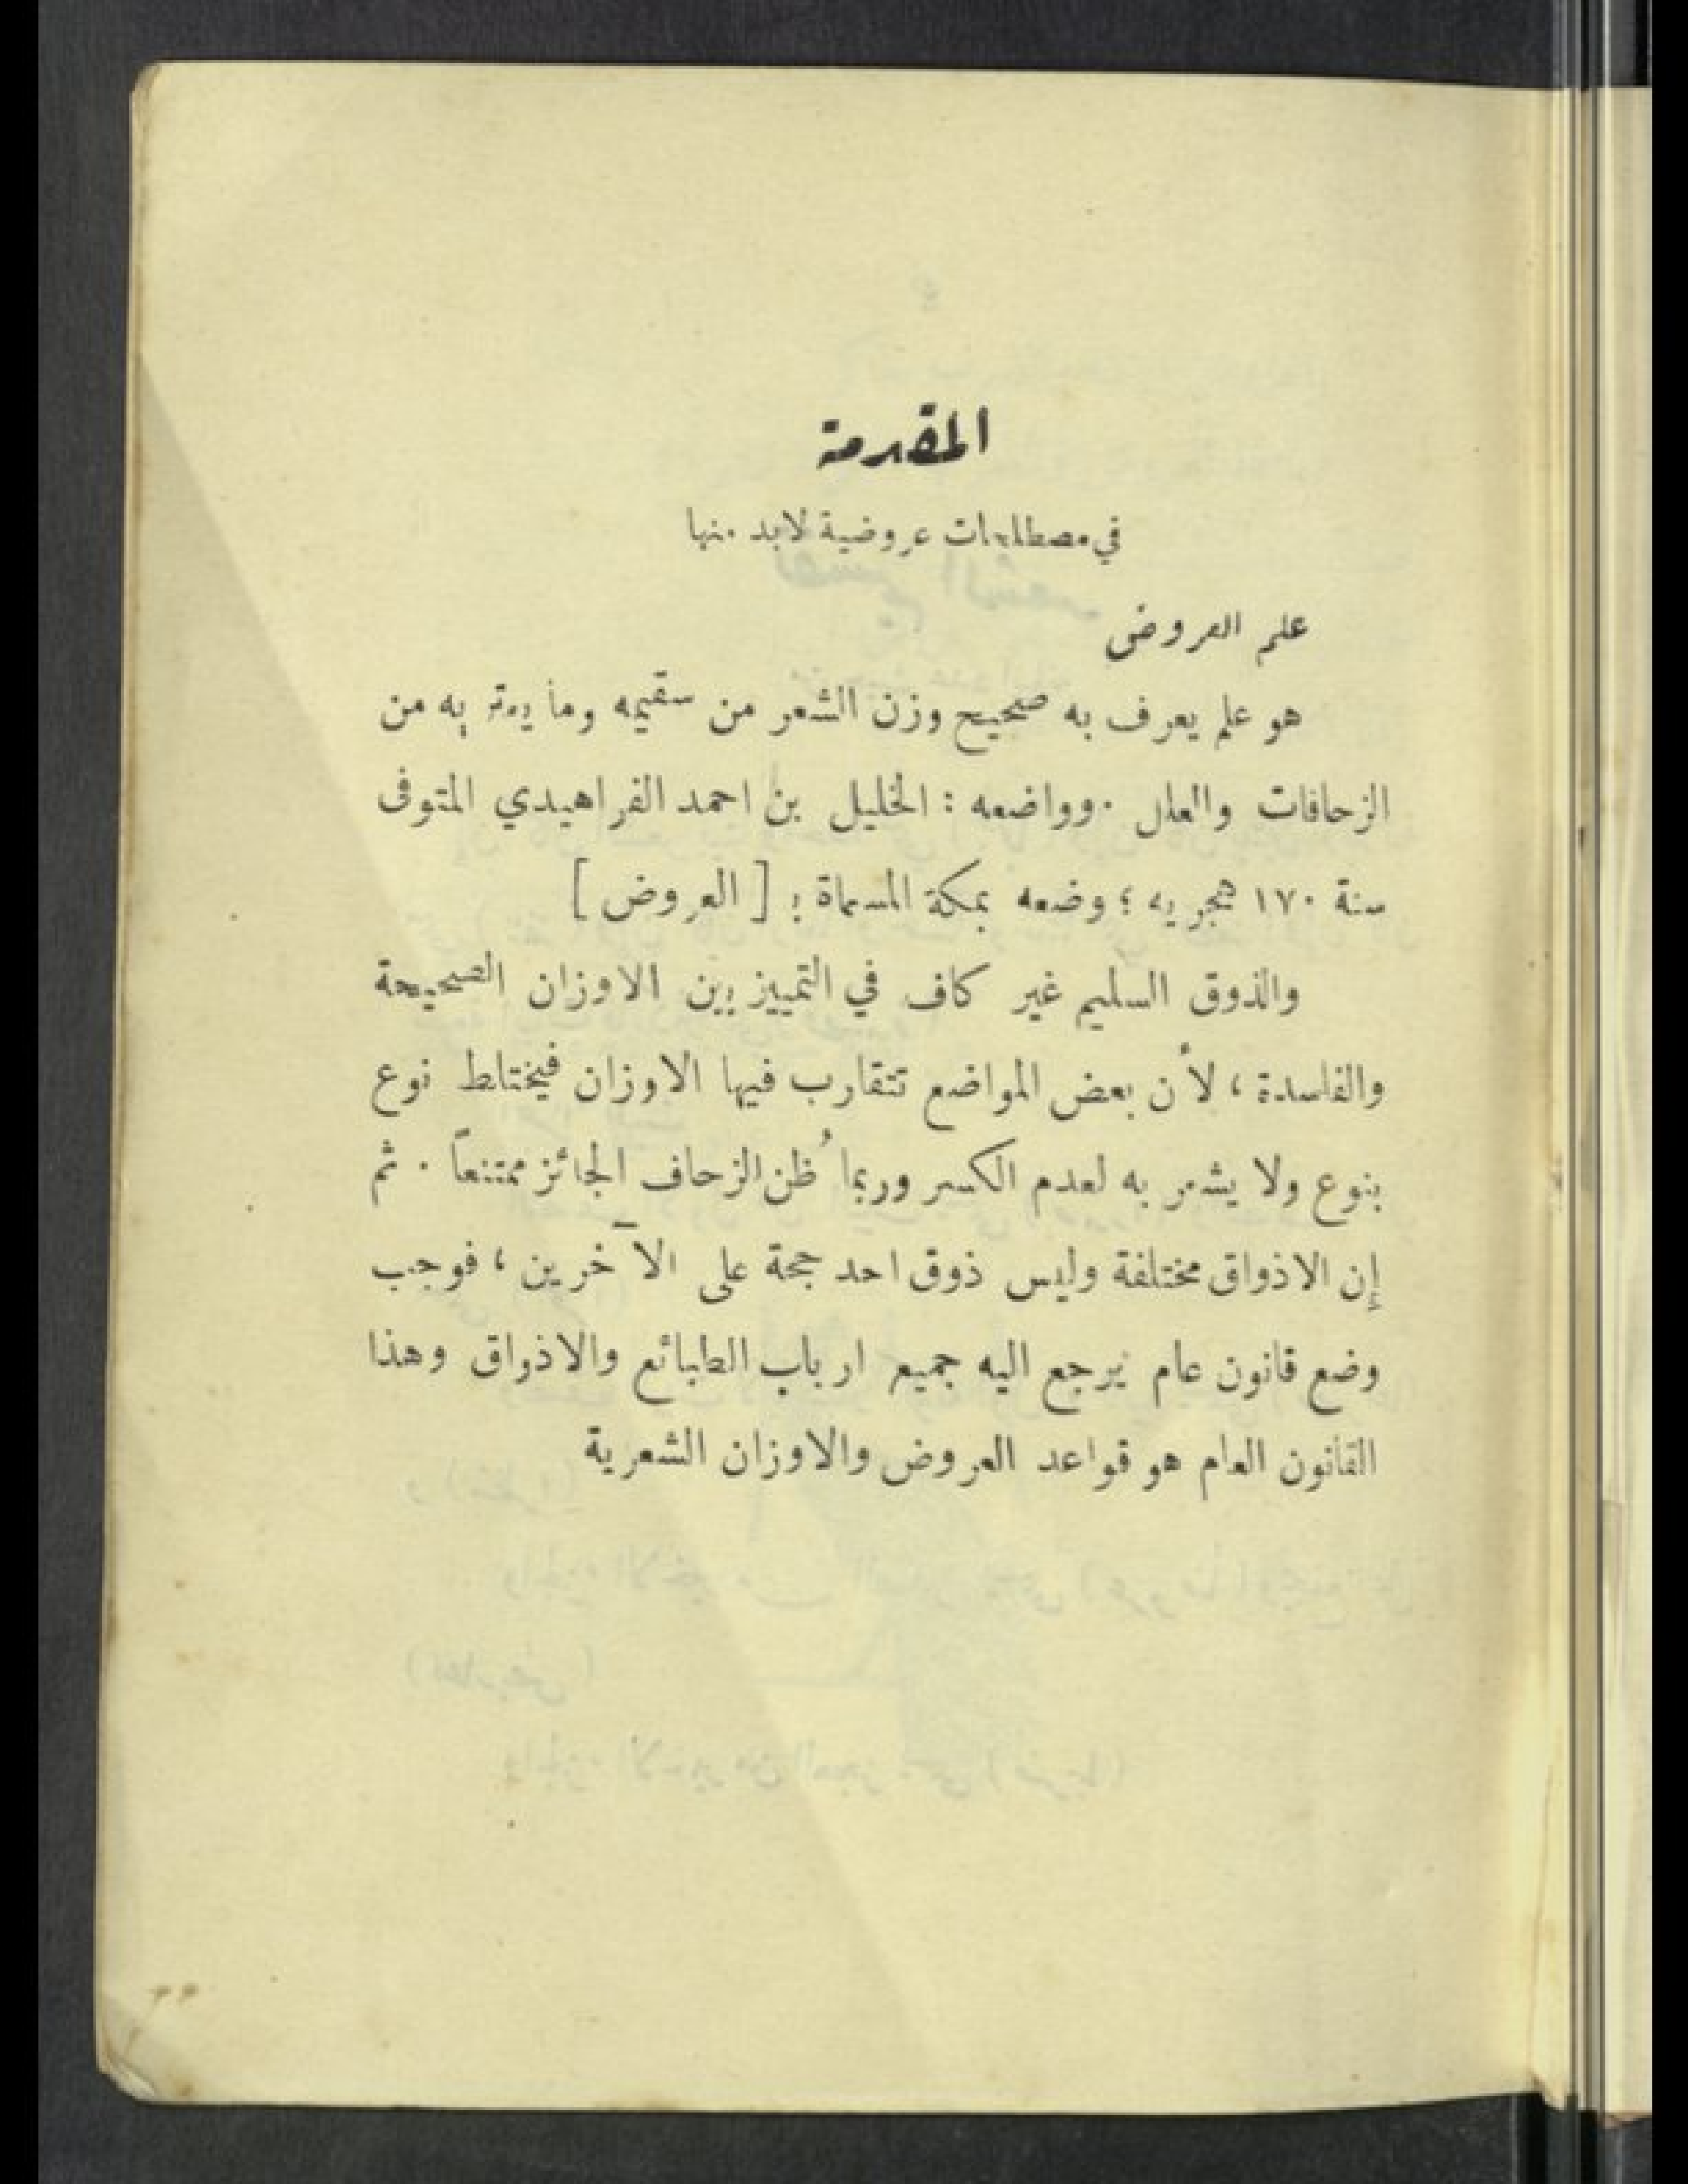 المقدمة
في مصطلحات عروضية لابد منها
علم العروض
هو علم يعرف به صحيح وزن الشعر من سقيمه وما يعتريه من
الزحافات والعلل . وواضعه : الخليل بن احمد الفراهيدي المتوفى
سنة ١٧٠ هجريه ؛ وضعه بمكة المسماة بـ [ العروض ]
والذوق السليم غير كاف في التمييز بين الاوزان الصحيحة
والفاسدة ، لأن بعض المواضع تتقارب فيها الاوزان فيختلط نوع
بنوع ولا يشعر به لعدم الكسر وربما ُظن الزحاف الجائز ممتنعاً . ثم
إن الاذواق مختلفة وليس ذوق احد حجة على الآخرين ، فوجب
وضع قانون عام يرجع اليه جميع ارباب الطبائع والاذواق وهذا
القانون العام هو قواعد العروض والاوزان الشعرية